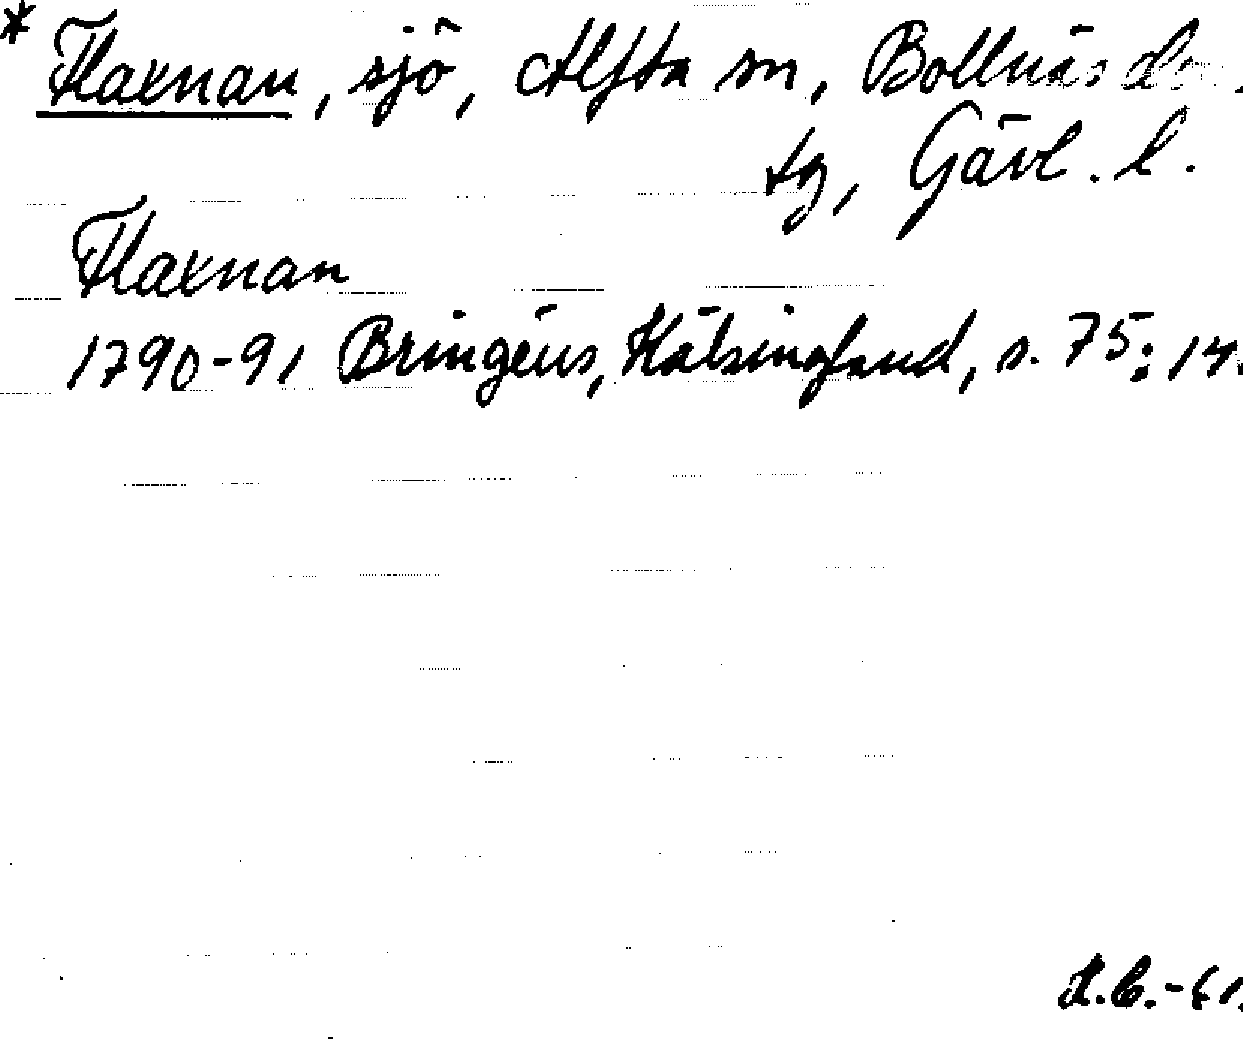 * Flaxnan, sjö, Alfta sn, Bollnäs dom.
tg, Gävl. l.
Flaxnan
1790-91 Bringéus, Hälsingland, s. 75:14.